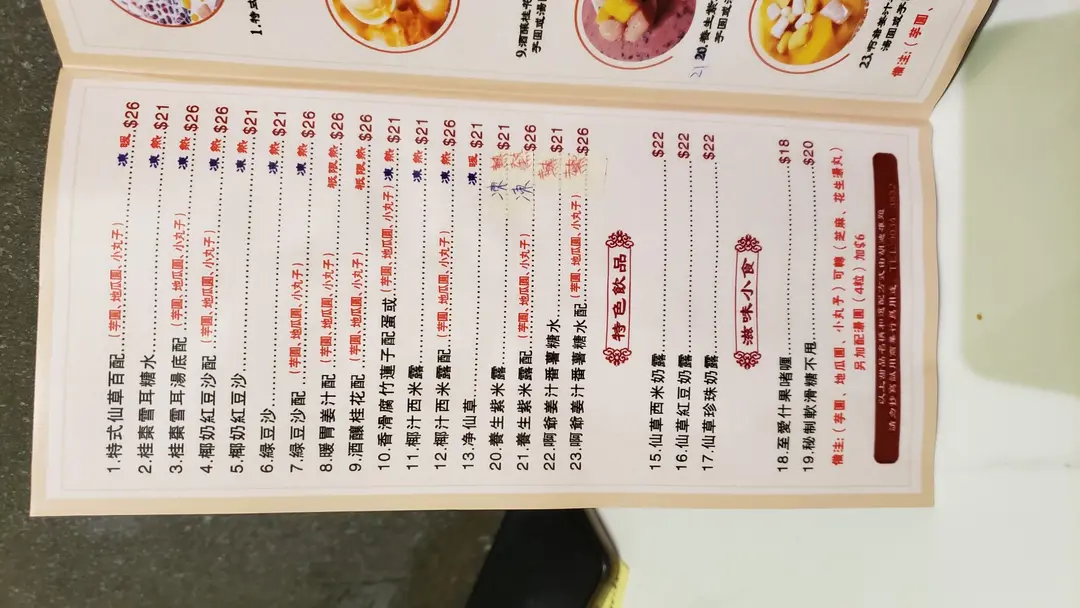 1.特式
9.酒釀桂花
芋圓或湯
21 20.養生紫
芋圓或湯
湯圓或芋
備注:(芋圓、
1.特式仙草百配(芋圓、地瓜圓、小丸子)凍 暖 $26
2.桂棗雪耳糖水凍 熱 $21
3.桂棗雪耳湯底配(芋圓、地瓜圓、小丸子)凍 熱 $26
4.椰奶紅豆沙配(芋圓、地瓜圓、小丸子)凍 熱 $26
5.椰奶紅豆沙凍 熱 $21
6.綠豆沙凍 熱 $21
7.綠豆沙配(芋圓、地瓜圓、小丸子)凍 熱 $26
8.暖胃姜汁配(芋圓、地瓜圓、小丸子)祇限熱 $26
9.酒釀桂花配(芋圓、地瓜圓、小丸子)祇限熱 $26
10.香滑腐竹蓮子配蛋或(芋圓、地瓜圓、小丸子)凍 熱 $21
11.椰汁西米露凍 熱 $21
12.椰汁西米露配(芋圓、地瓜圓、小丸子)凍 熱 $26
13.净仙草凍 暖 $21
20.養生紫米露凍 熱 $21
21.養生紫米露配(芋圓、地瓜圓、小丸子)凍 熱 $26
22.啊爺姜汁番薯糖水熱 $21
23.啊爺姜汁番薯糖水配(芋圓、地瓜圓、小丸子)熱 $26
特色飲品
15.仙草西米奶露$22
16.仙草紅豆奶露$22
17.仙草珍珠奶露$22
滋味小食
18.至愛什果啫喱$18
19.秘制軟滑糖不甩$20
備注:(芋圓、地瓜圓、小丸子)可轉(芝麻、花生湯丸)
另加配湯圓(4粒)加$6